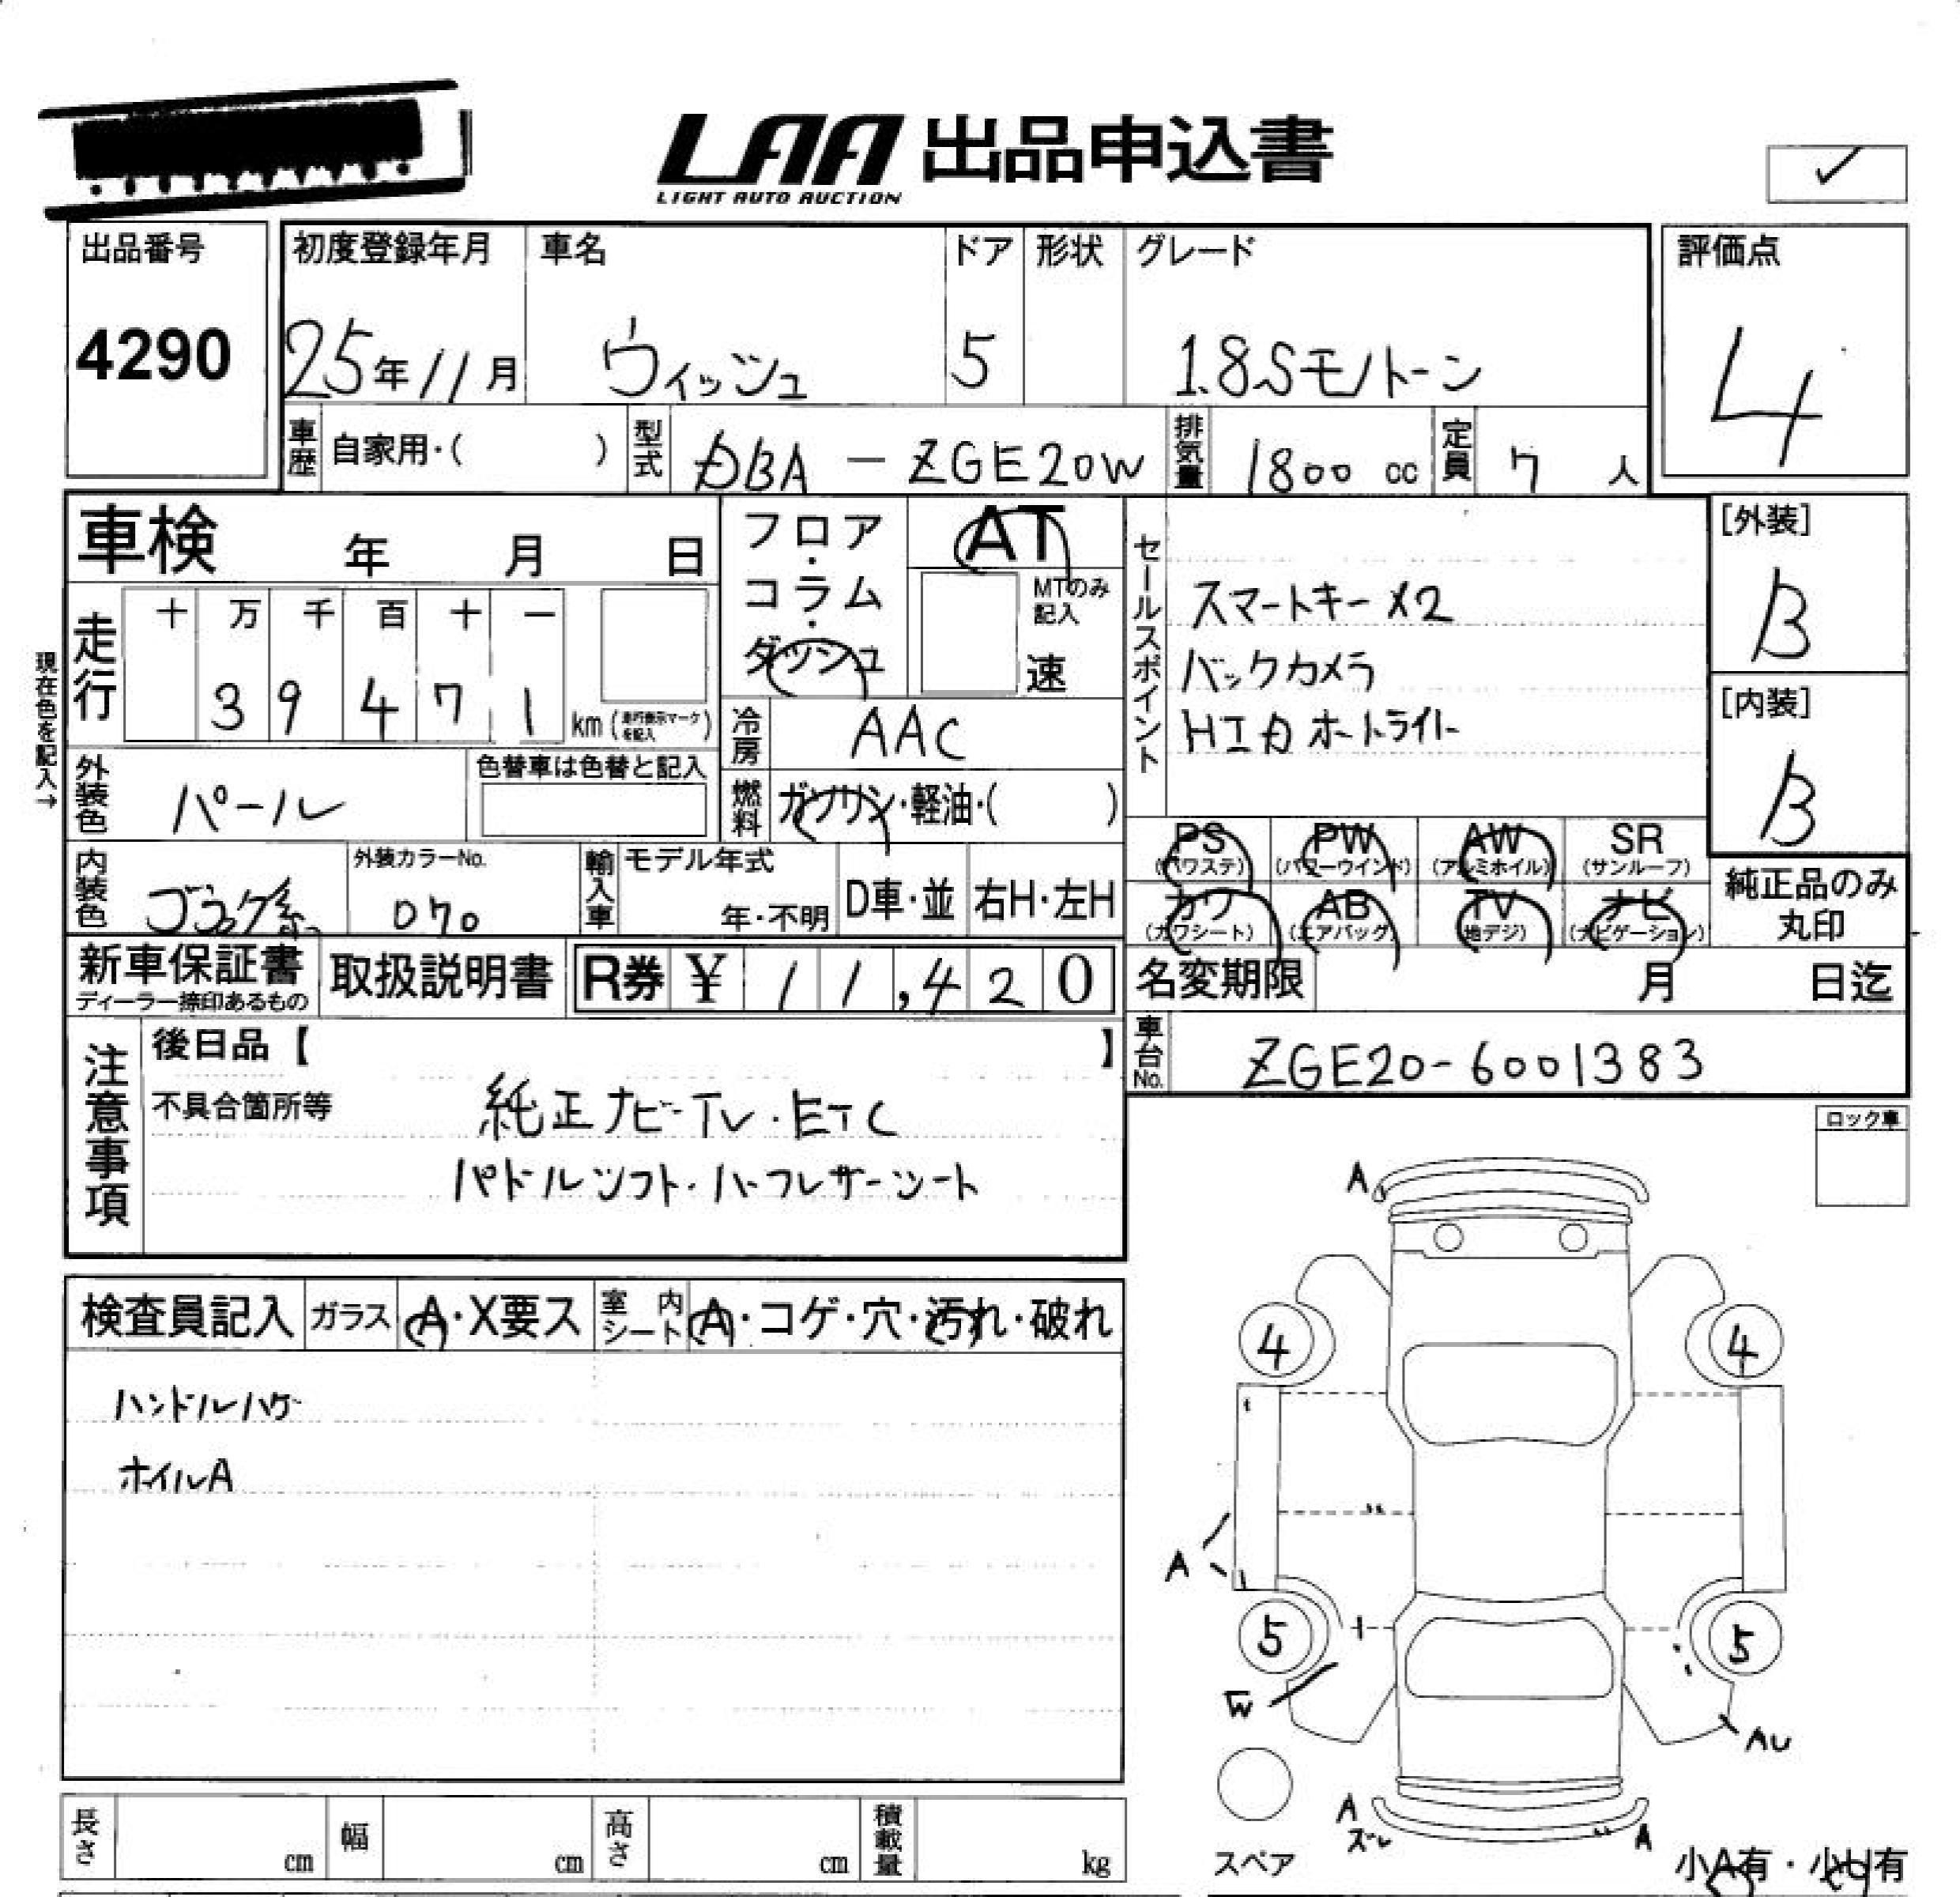 LAA 出品申込書
LIGHT AUTO AUCTION
出品番号
4290
初度登録年月
25年11月
車名
ウィッシュ
ドア
5
形状
グレード
1.8Sモノトーン
評価点
4
車歴 自家用・( )
型式 DBA - ZGE20W
排気量 1800 cc
定員 7 人
車検 年 月 日
フロア・コラム・ダッシュ
AT
MTのみ記入
速
セールスポイント
スマートキー×2
バックカメラ
HIDオートライト
[外装]
B
[内装]
B
現在色を記入→
走行
十 万 千 百 十 一
3 9 4 7 1 km (走行表示マークを記入)
冷房 AAC
外装色 パール
色替車は色替と記入
燃料 ガソリン・軽油・( )
PS (パワステ)
PW (パワーウインド)
AW (アルミホイル)
SR (サンルーフ)
カワ (カワシート)
AB (エアバッグ)
TV (地デジ)
ナビ (ナビゲーション)
純正品のみ丸印
内装色 ブラック系
外装カラーNo.
070
輸入車
モデル年式
年・不明
D車・並
右H・左H
新車保証書
ディーラー捺印あるもの
取扱説明書
R券 ¥ 11,420
名変期限 月 日迄
車台No. ZGE20-6001383
注意事項
後日品【 】
不具合箇所等
純正ナビ・TV・ETC
パドルシフト・ハーフレザーシート
ロック車
検査員記入
ガラス A・X要ス
室内シート A・コゲ・穴・汚れ・破れ
ハンドルハゲ
ホイルA
A
4
4
A
5
5
W
AU
A
ズレ
A
スペア
小A有・小U有
長さ cm
幅 cm
高さ cm
積載量 kg